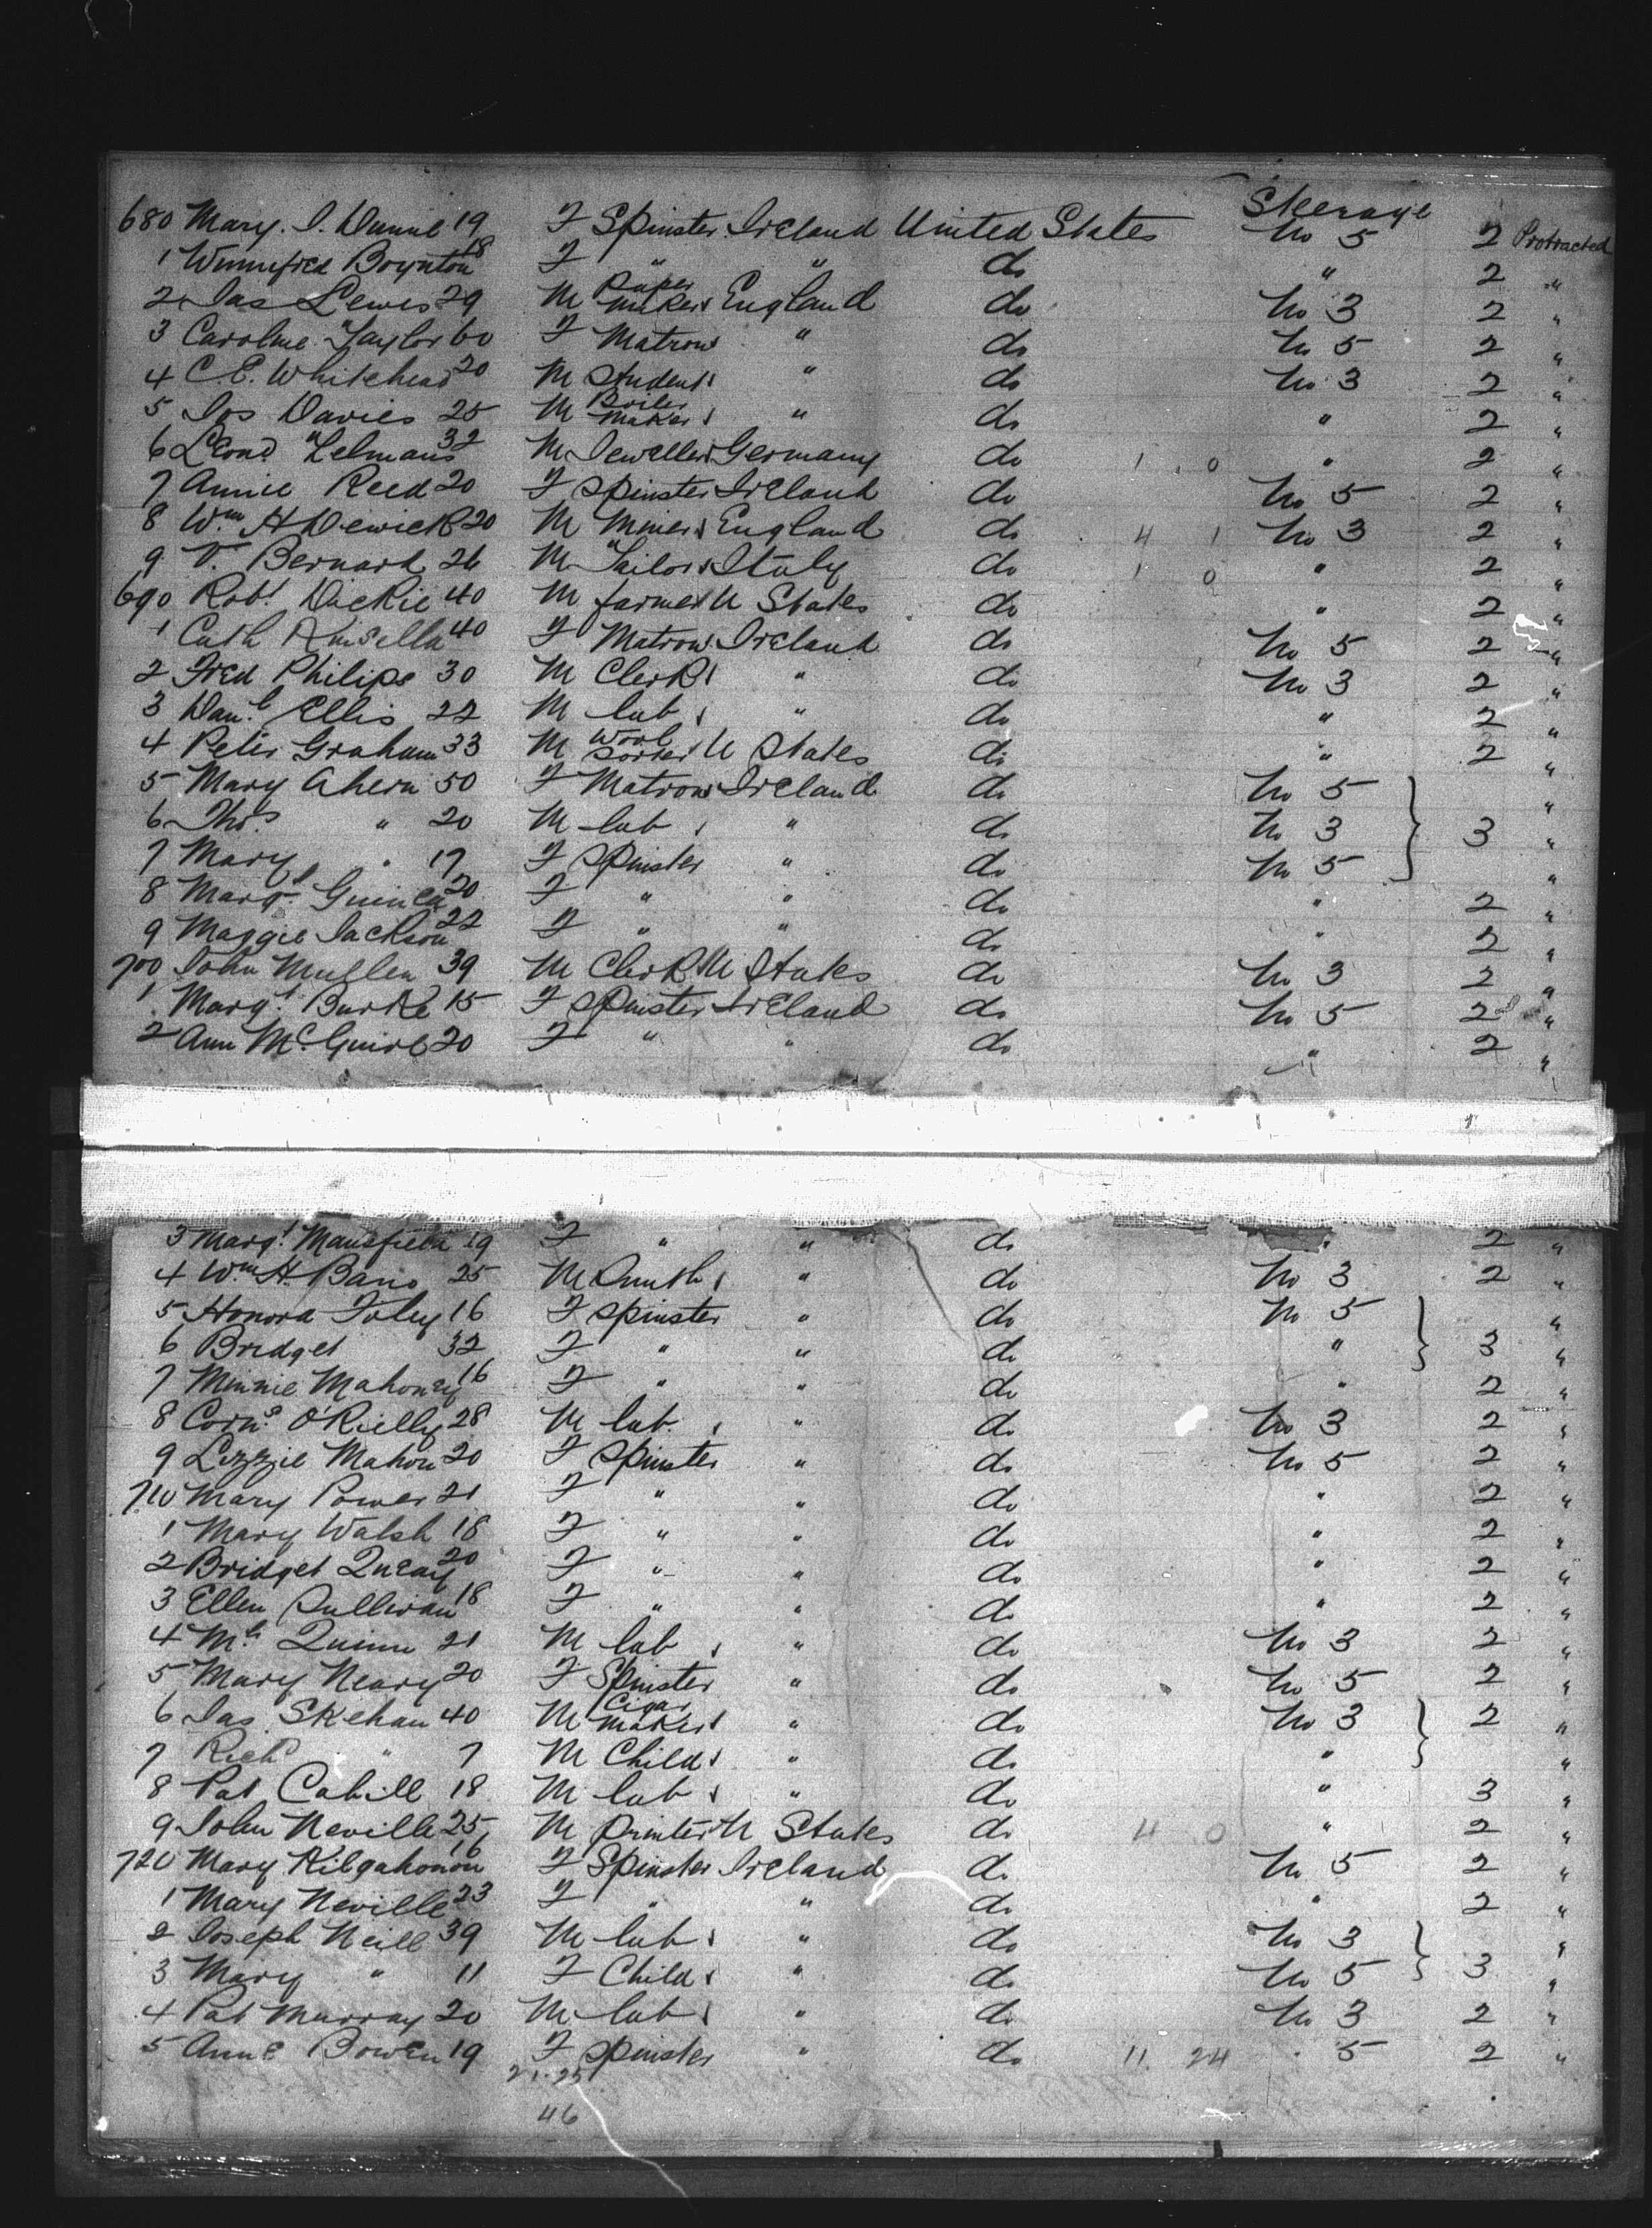 Steerage
680 Mary. I. Dunne 19 F Spinster Ireland United States No 5 2 Protracted
1 Winnifred Boynton 18 F " " do " 2 "
2 Jas Lewis 29 M Paper maker England do No 3 2 "
3 Caroline Taylor 60 F Matron " do No 5 2 "
4 C. E. Whitehead 20 M Student " do No 3 2 "
5 Jos Davies 25 M Boiler maker " do " 2 "
6 Leond Zelmans 32 M Jeweller Germany do 1 0 " 2 "
7 Annie Reed 20 F Spinster Ireland do No 5 2 "
8 Wm H Dewick 20 M Miner England do 4 1 No 3 2 "
9 V. Bernard 26 M Tailor Italy do 1 0 " 2 "
690 Robt Dickie 40 M farmer U States do " 2 "
1 Cath Kinsella 40 F Matron Ireland do No 5 2 "
2 Fred Philips 30 M Clerk " do No 3 2 "
3 Danl Ellis 22 M lab " do " 2 "
4 Peter Graham 33 M Wool Sorter U States do " 2 "
5 Mary Ahern 50 F Matron Ireland do No 5 "
6 Thos " 20 M lab " do No 3 3 "
7 Mary " 17 F Spinster " do No 5 "
8 Margt Guinea 20 F " " do " 2 "
9 Maggie Jackson 22 F " " do " 2 "
700 John Mullen 39 M Clerk U States do No 3 2 "
1 Margt Burke 15 F Spinster Ireland do No 5 2 "
2 Ann McGuire 20 F " " do " 2 "
3 Margt Mansfield 19 F " " do " 2 "
4 Wm H. Bano 25 M Smith " do No 3 2 "
5 Honora Foley 16 F Spinster " do No 5 "
6 Bridget 32 F " " do " 3 "
7 Minnie Mahoney 16 F " " do " 2 "
8 Corns O'Rielly 28 M lab. " do No 3 2 "
9 Lizzie Mahon 20 F Spinster " do No 5 2 "
710 Mary Power 21 F " " do " 2 "
1 Mary Walsh 18 F " " do " 2 "
2 Bridget Queay 20 F " " do " 2 "
3 Ellen Sullivan 18 F " " do " 2 "
4 Ml Quinn 21 M lab " do No 3 2 "
5 Mary Neary 20 F Spinster " do No 5 2 "
6 Jas Skehan 40 M Cigar maker " do No 3 2 "
7 Richd " 7 M Child " do " "
8 Pat Cahill 18 M lab " do " 3 "
9 John Neville 25 M Printer U States do 4 0 " 2 "
720 Mary Kilgahonon 16 F Spinster Ireland do No 5 2 "
1 Mary Neville 23 F " " do " 2 "
2 Joseph Neill 39 M lab " do No 3 "
3 Mary " 11 F Child " do No 5 3 "
4 Pat Murray 20 M lab " do No 3 2 "
5 Anne Bowen 19 F Spinster " do 11 24 " 5 2 "
21.25
46